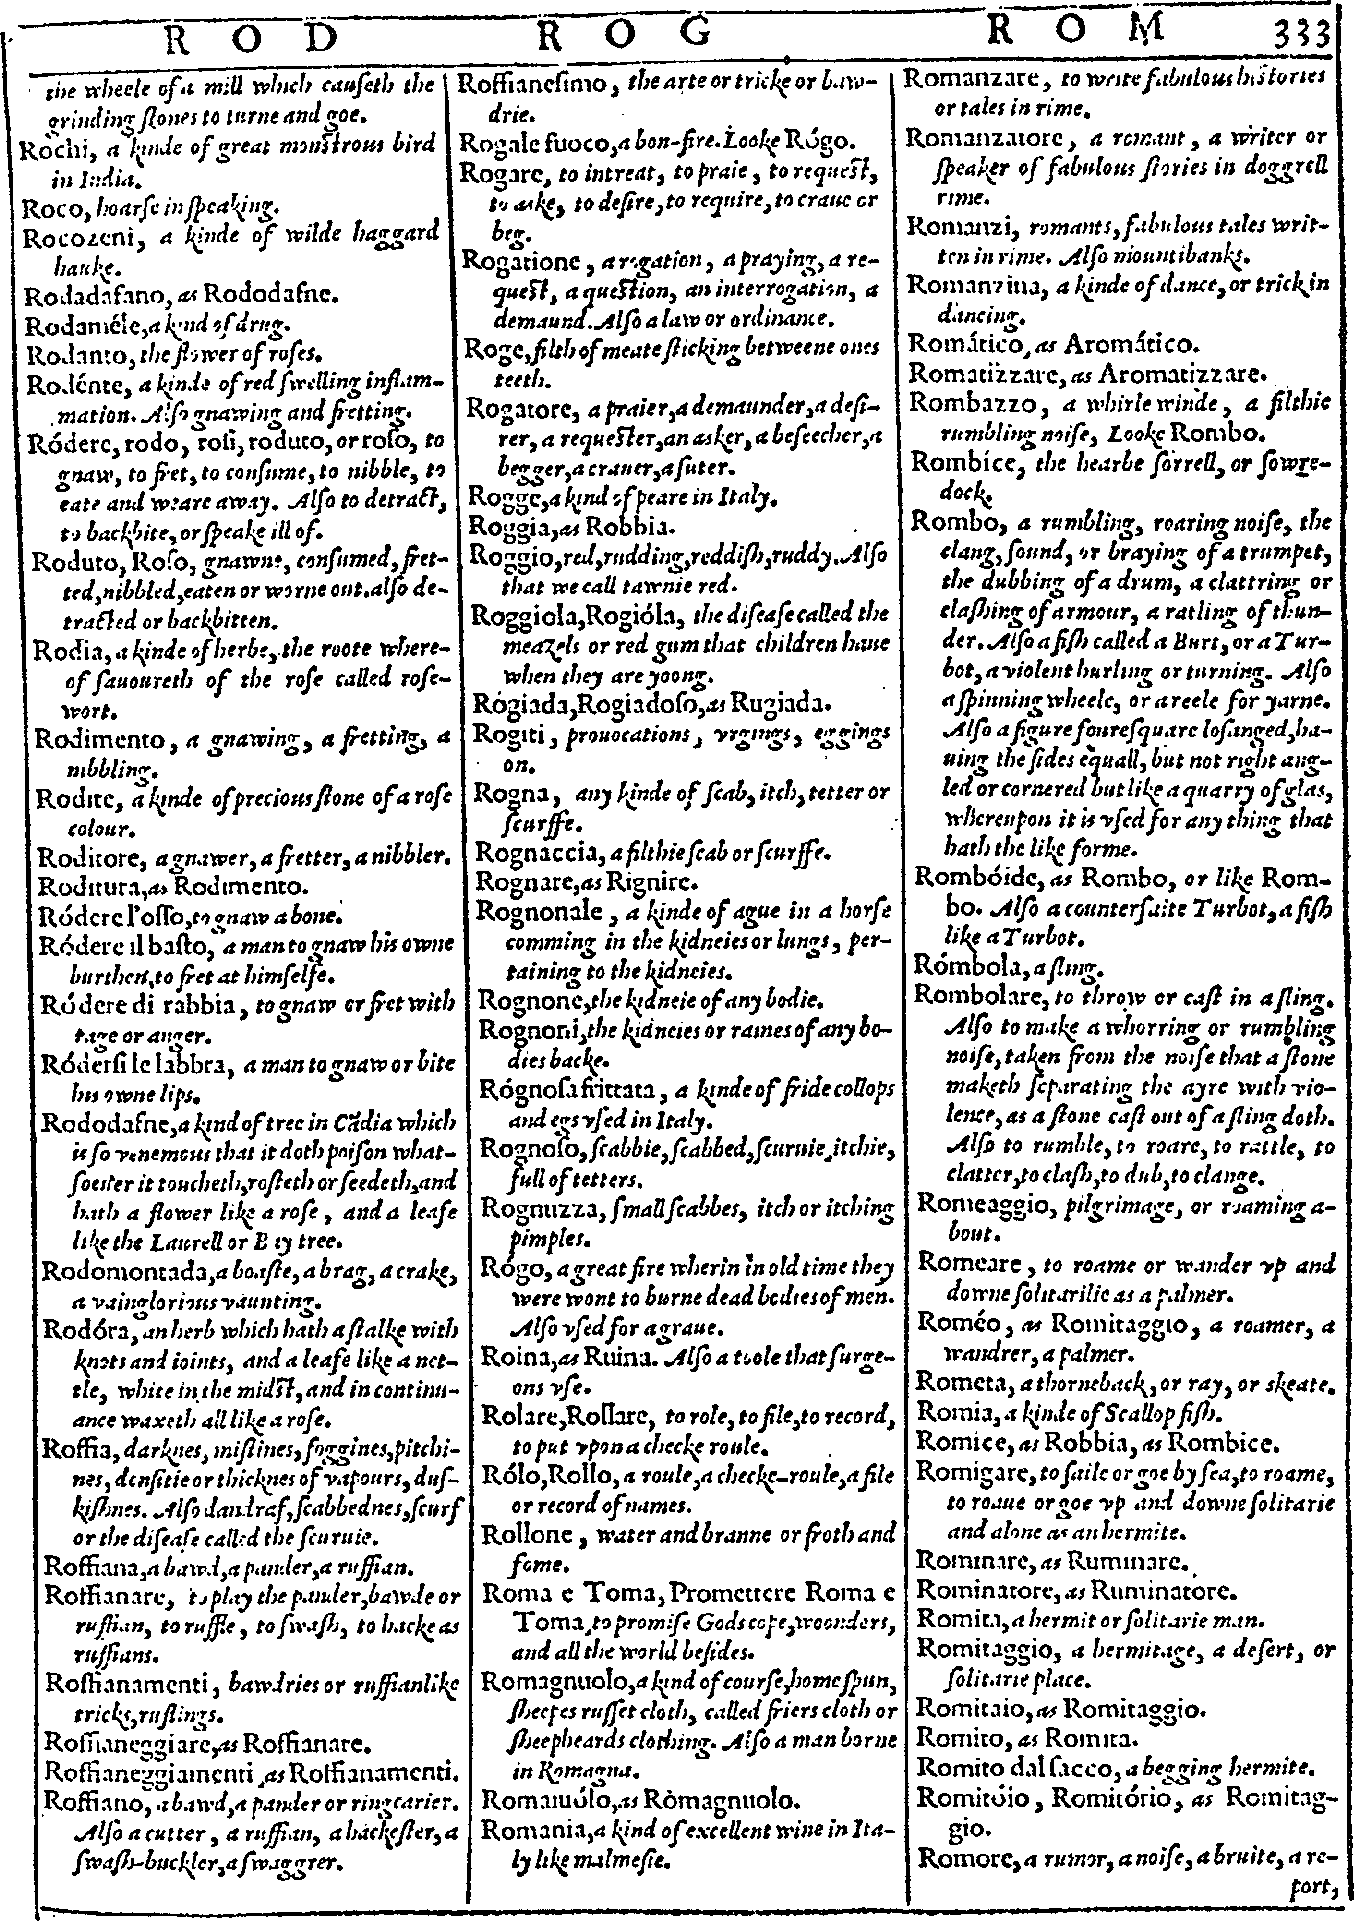 R O D R O G R O M 333
the wheele of a mill which causeth the
grinding stones to turne and goe.
Rochi, a kinde of great monstrous bird
in India.
Roco, hoarse in speaking.
Rocozeni, a kinde of wilde haggard
hauke.
Rodadafano, as Rododafne.
Rodaméle, a kind of drug.
Rodanto, the flower of roses.
Rodénte, a kinde of red swelling inflam-
mation. Also gnawing and fretting.
Ródere, rodo, rosi, roduto, or roso, to
gnaw, to fret, to consume, to nibble, to
eate and weare away. Also to detract,
to backbite, or speake ill of.
Roduto, Roso, gnawne, consumed, fret-
ted, nibbled, eaten or worne out. also de-
tracted or backbitten.
Rodia, a kinde of herbe, the roote where-
of sauoureth of the rose called rose-
wort.
Rodimento, a gnawing, a fretting, a
nibbling.
Rodite, a kinde of precious stone of a rose
colour.
Roditore, a gnawer, a fretter, a nibbler.
Roditura, as Rodimento.
Ródere l'osso, to gnaw a bone.
Ródere il basto, a man to gnaw his owne
burthen, to fret at himselfe.
Ródere di rabbia, to gnaw or fret with
rage or anger.
Ródersi le labbra, a man to gnaw or bite
his owne lips.
Rododafne, a kind of tree in Cãdia which
is so venemous that it doth poison what-
soeuer it toucheth, rosteth or seedeth, and
hath a flower like a rose, and a leafe
like the Laurell or Bay tree.
Rodomontada, a boaste, a brag, a crake,
a vainglorious vaunting.
Rodóra, an herb which hath a stalke with
knots and ioints, and a leafe like a net-
tle, white in the midst, and in continu-
ance waxeth all like a rose.
Roffia, darknes, mistines, foggines, pitchi-
nes, densitie or thicknes of vapours, dus-
kishnes. Also dandraf, scabbednes, scurf
or the disease called the scuruie.
Roffiana, a bawd, a pander, a ruffian.
Roffianare, to play the pander, bawde or
ruffian, to ruffle, to swash, to hacke as
ruffians.
Roffianamenti, bawdries or ruffianlike
tricks, ruflings.
Roffianeggiare, as Roffianare.
Roffianeggiamenti, as Roffianamenti.
Roffiano, a bawd, a pander or ring carier.
Also a cutter, a ruffian, a hackester, a
swash-buckler, a swaggrer.
Roffianesimo, the arte or tricke or baw-
drie.
Rogale fuoco, a bon-fire. Looke Rógo.
Rogare, to intreat, to praie, to request,
to aske, to desire, to require, to craue or
beg.
Rogatione, a rogation, a praying, a re-
quest, a question, an interrogation, a
demaund. Also a law or ordinance.
Roge, filth of meate sticking betweene ones
teeth.
Rogatore, a praier, a demaunder, a desi-
rer, a requester, an asker, a beseecher, a
begger, a crauer, a suter.
Rogge, a kind of peare in Italy.
Roggia, as Robbia.
Roggio, red, rudding, reddish, ruddy. Also
that we call tawnie red.
Roggiola, Rogióla, the disease called the
meazels or red gum that children haue
when they are yoong.
Rógiada, Rogiadoso, as Rugiada.
Rogiti, prouocations, vrgings, eggings
on.
Rogna, any kinde of scab, itch, tetter or
scurffe.
Rognaccia, a filthie scab or scurffe.
Rognare, as Rignire.
Rognonale, a kinde of ague in a horse
comming in the kidneies or lungs, per-
taining to the kidneies.
Rognone, the kidneie of any bodie.
Rognoni, the kidneies or raines of any bo-
dies backe.
Rógnosa frittata, a kinde of fride collops
and egs vsed in Italy.
Rognoso, scabbie, scabbed, scuruie, itchie,
full of tetters.
Rognuzza, small scabbes, itch or itching
pimples.
Rógo, a great fire wherin in old time they
were wont to burne dead bodies of men.
Also vsed for a graue.
Roina, as Ruina. Also a toole that surge-
ons vse.
Rolare, Rollare, to role, to file, to record,
to put vpon a checke roule.
Rólo, Rollo, a roule, a checke-roule, a file
or record of names.
Rollone, water and branne or froth and
fome.
Roma e Toma, Promettere Roma e
Toma, to promise Gods cope, woonders,
and all the world besides.
Romagnuolo, a kind of course, homespun,
sheepes russet cloth, called friers cloth or
sheepheards clothing. Also a man borne
in Romagna.
Romaiuólo, as Ròmagnuolo.
Romania, a kind of excellent wine in Ita-
ly like malmesie.
Romanzare, to write fabulous histories
or tales in rime.
Romanzatore, a romant, a writer or
speaker of fabulous stories in doggrell
rime.
Romanzi, romants, fabulous tales writ-
ten in rime. Also mountibanks.
Romanzina, a kinde of dance, or trick in
dancing.
Romático, as Aromático.
Romatizzare, as Aromatizzare.
Rombazzo, a whirle winde, a filthie
rumbling noise, Looke Rombo.
Rombíce, the hearbe sorrell, or sowre-
dock.
Rombo, a rumbling, roaring noise, the
clang, sound, or braying of a trumpet,
the dubbing of a drum, a clattring or
clashing of armour, a ratling of thun-
der. Also a fish called a Burt, or a Tur-
bot, a violent hurling or turning. Also
a spinning wheele, or a reele for yarne.
Also a figure fouresquare losanged, ha-
uing the sides equall, but not right ang-
led or cornered but like a quarry of glas,
whereupon it is vsed for any thing that
hath the like forme.
Rombóide, as Rombo, or like Rom-
bo. Also a counterfaite Turbot, a fish
like a Turbot.
Rómbola, a sling.
Rombolare, to throw or cast in a sling.
Also to make a whorring or rumbling
noise, taken from the noise that a stone
maketh separating the ayre with vio-
lence, as a stone cast out of a sling doth.
Also to rumble, to roare, to rattle, to
clatter, to clash, to dub, to clange.
Romeaggio, pilgrimage, or roaming a-
bout.
Romeare, to roame or wander vp and
downe solitarilie as a palmer.
Roméo, as Romitaggio, a roamer, a
wandrer, a palmer.
Rometa, a thorneback, or ray, or skeate.
Romia, a kinde of Scallop fish.
Romice, as Robbia, as Rombice.
Romigare, to saile or goe by sea, to roame,
to roaue or goe vp and downe solitarie
and alone as an hermite.
Rominare, as Ruminare.
Rominatore, as Ruminatore.
Romita, a hermit or solitarie man.
Romitaggio, a hermitage, a desert, or
solitarie place.
Romitaio, as Romitaggio.
Romito, as Romita.
Romito dal sacco, a begging hermite.
Romitóio, Romitório, as Romitag-
gio.
Romore, a rumor, a noise, a bruite, a re-
port,